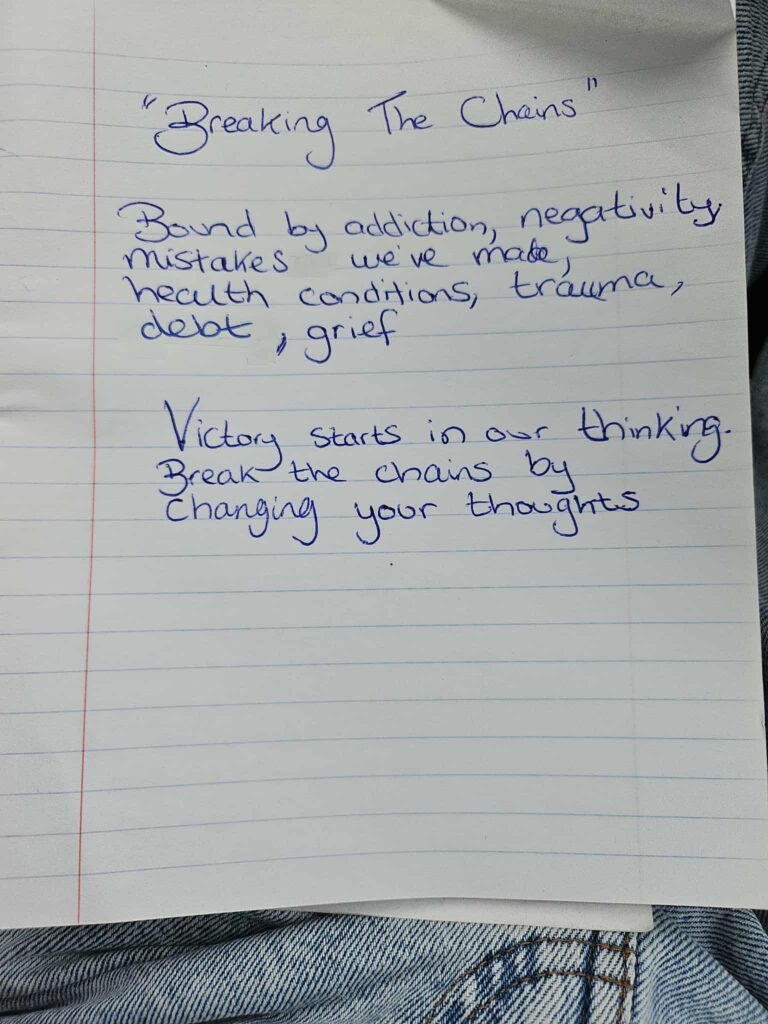 "Breaking The Chains"
Bound by addiction, negativity,
mistakes we've made,
health conditions, trauma,
debt, grief
Victory starts in our thinking.
Break the chains by
changing your thoughts